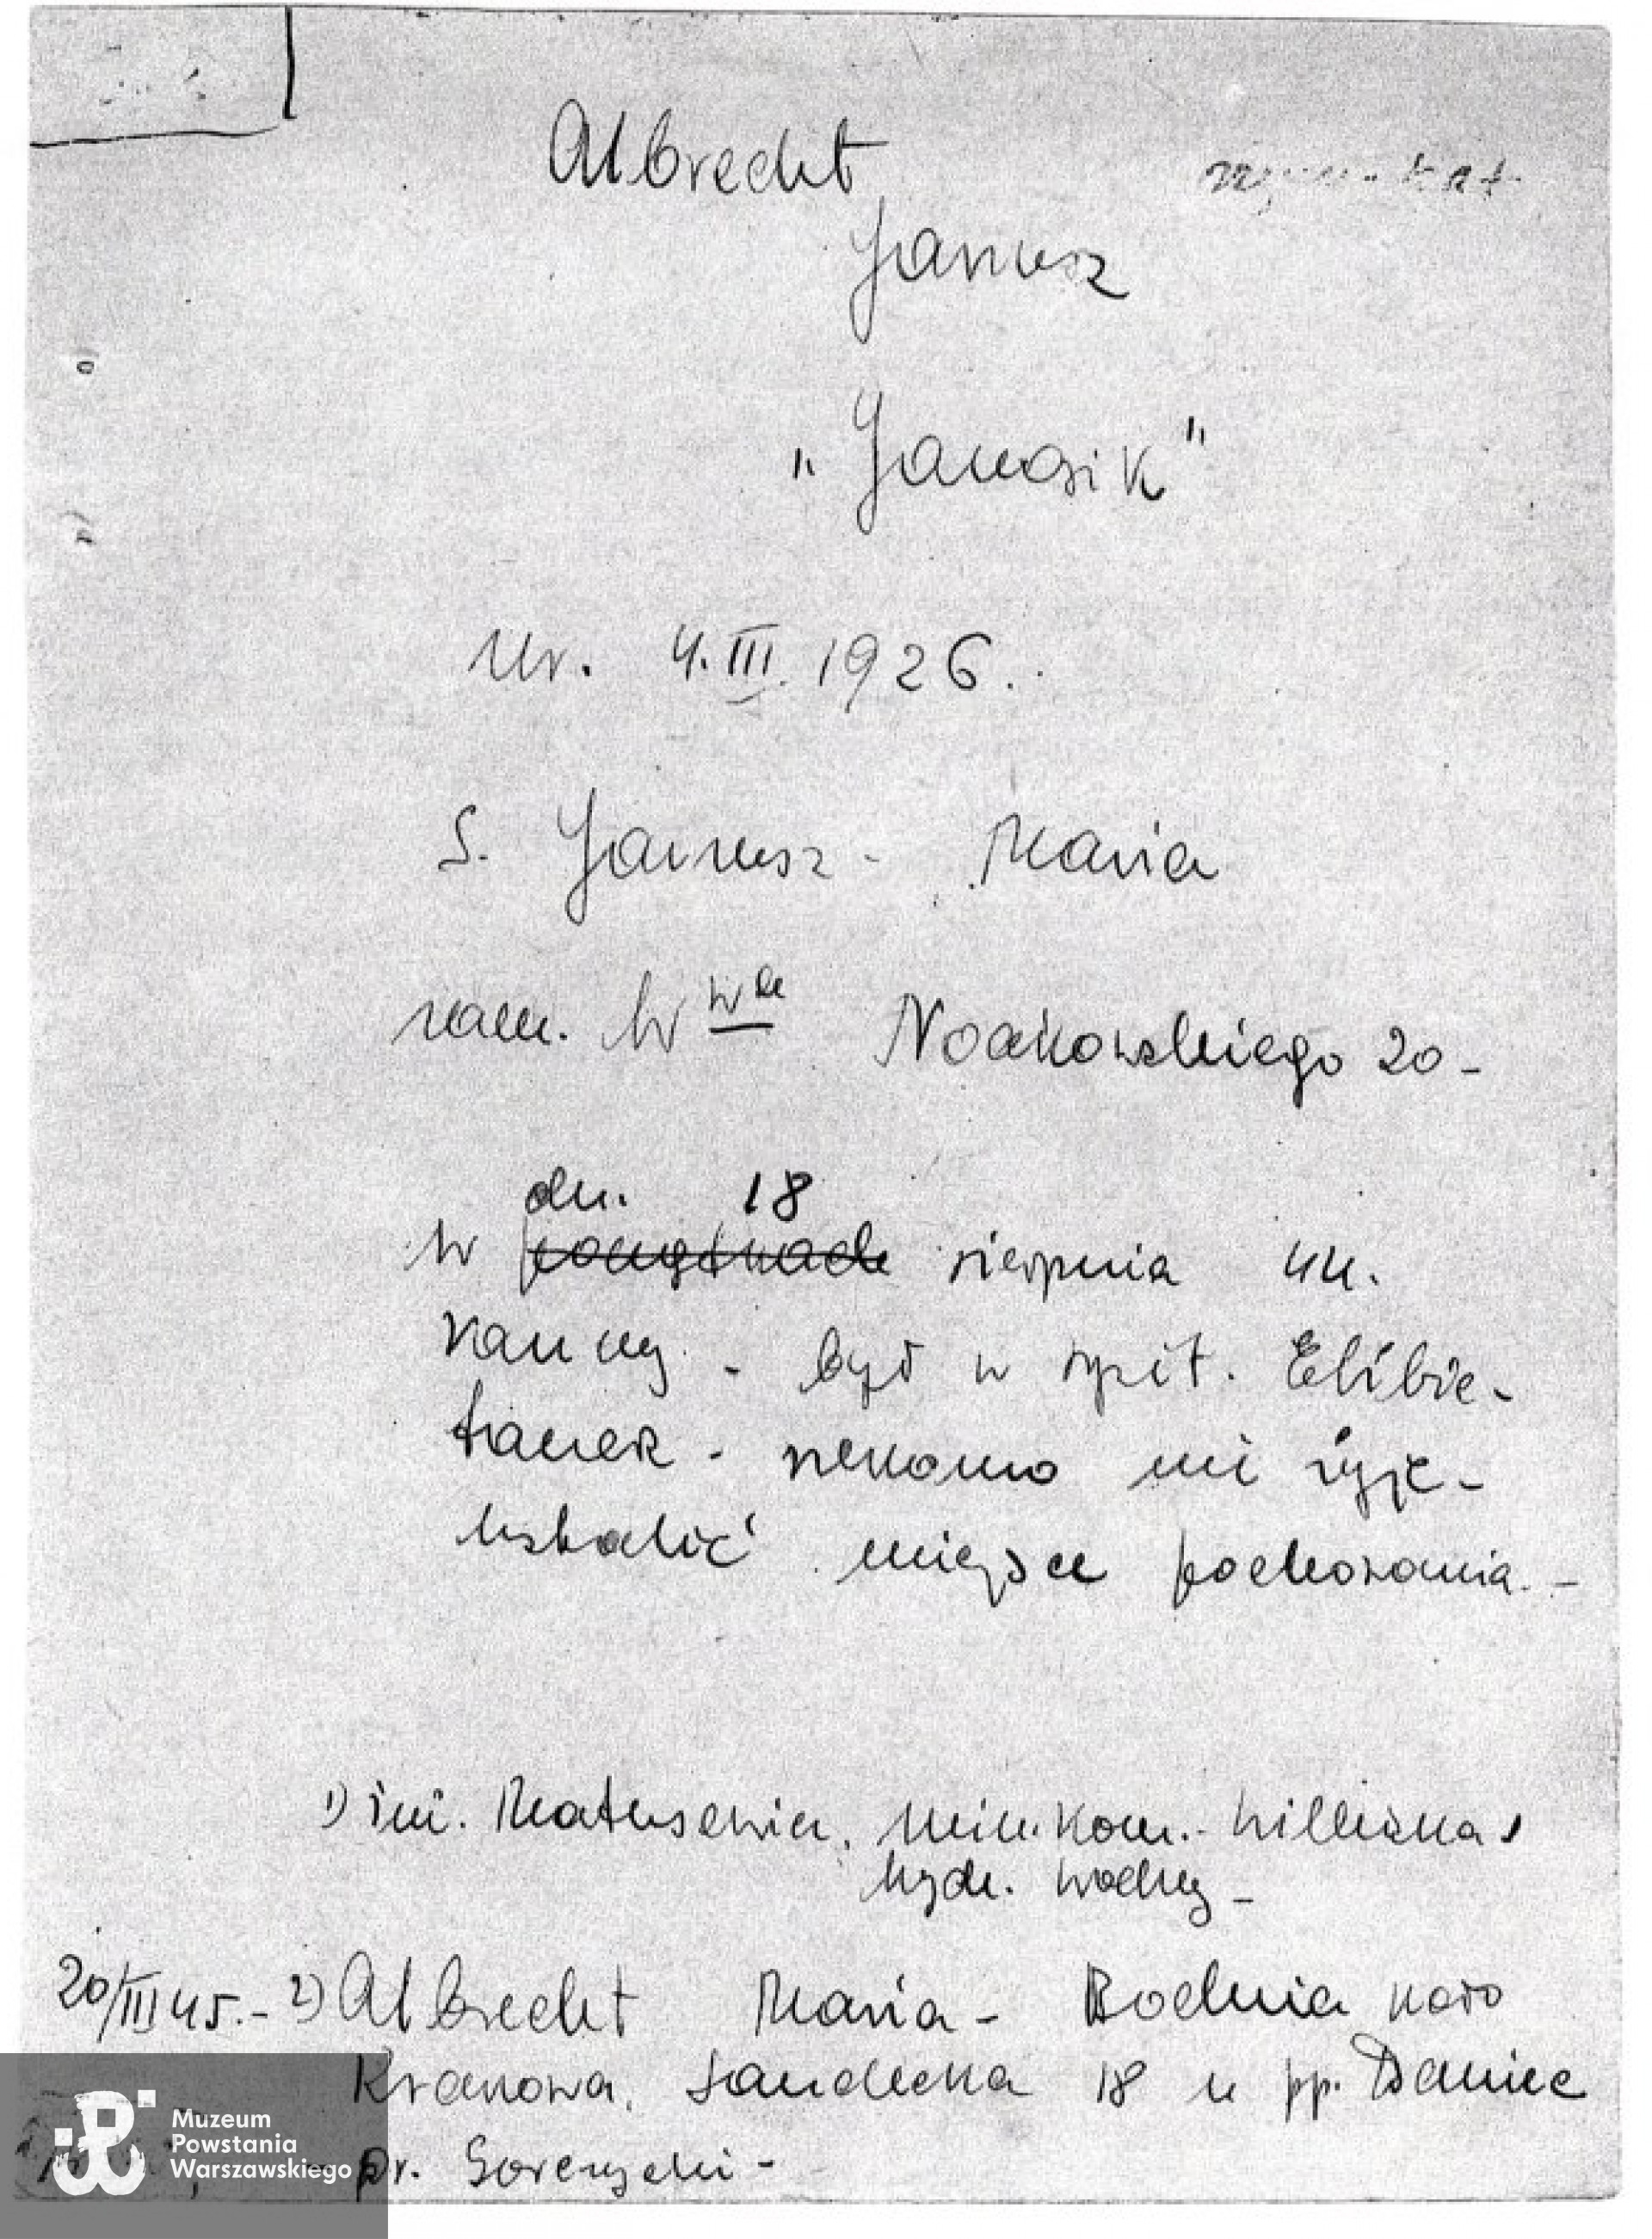 Albrecht
Janusz
„Janosik"
Ur. 4.III.1926.
S. Janusz - Maria
zam. W wie Noakowskiego 20-
dn. 18
w początkach sierpnia 44.
ranny - był w szpit. Elżbie-
tanek - rekomo nie żyje -
ustalić miejsce pochowania. -
1) inż. Matusewicz, Min. Kom. - Wileńska,
Wydz. Wodny -
20/III 45. - 2) Albrecht Maria - Bochnia koło
Krakowa, Sandecka 18 u pp. Daniec
pr. Gorczycki -
Muzeum
Powstania
Warszawskiego